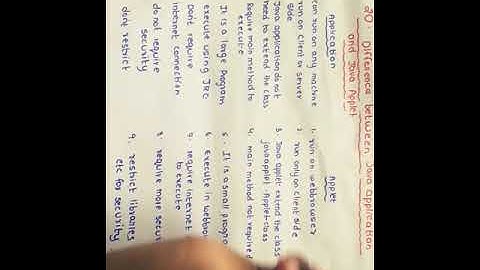 20. Difference between Java application
and Java Applet
Application
can run on any machine
run on client or server
side
Java application do not
need to extend the class
Require main method to
execute
It is a large Program
execute using JRE
Dont require
internet connection
do not require
security
dont restrict
Applet
1. run on webbrowser
2. run only on client side
3. Java applet extend the class
java.applet.Applet class
4. main method not required
5. It is a small program
6. Execute in webbrow
7. require internet
to execute
8. require more secur
9. restrict libraries
etc for security